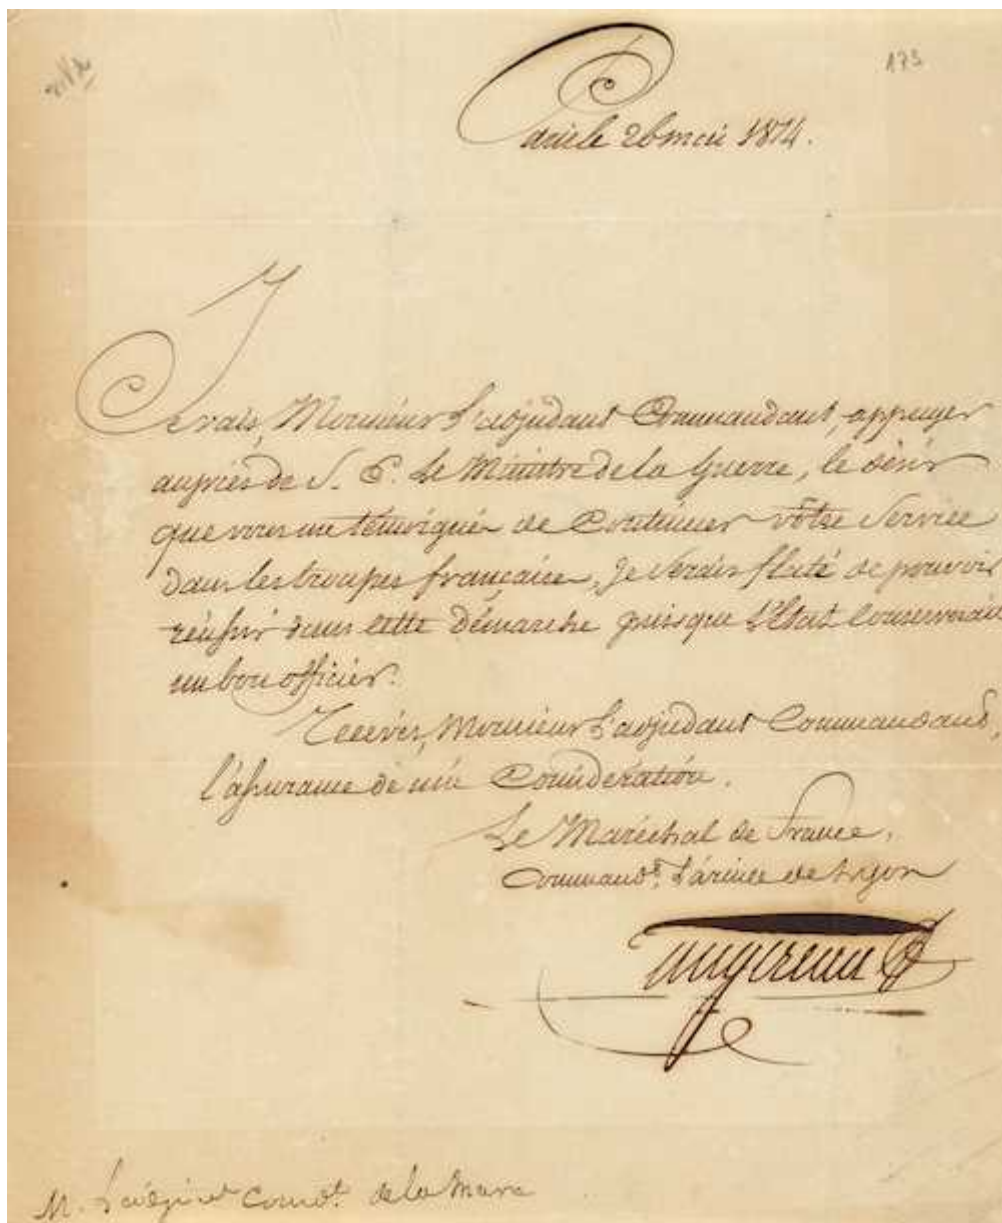 173
Paris le 26 mai 1814.
Je vais, Monsieur L'adjudant Commandant, appuyer
auprès de S. E. Le Ministre de la Guerre, le désir
que vous me témoignés de Continuer vôtre Service
dans les troupes françaises, je serais flaté de pouvoir
réussir dans cette démarche puisque l'Etat conserverait
un bon officier.
Recevés, Monsieur L'adjudant Commandant,
l'assurance de ma Considération.
Le Maréchal de France,
Command.t L'armée de Lyon
Augereau
M. L'adjud.t Comd.t de la Mare